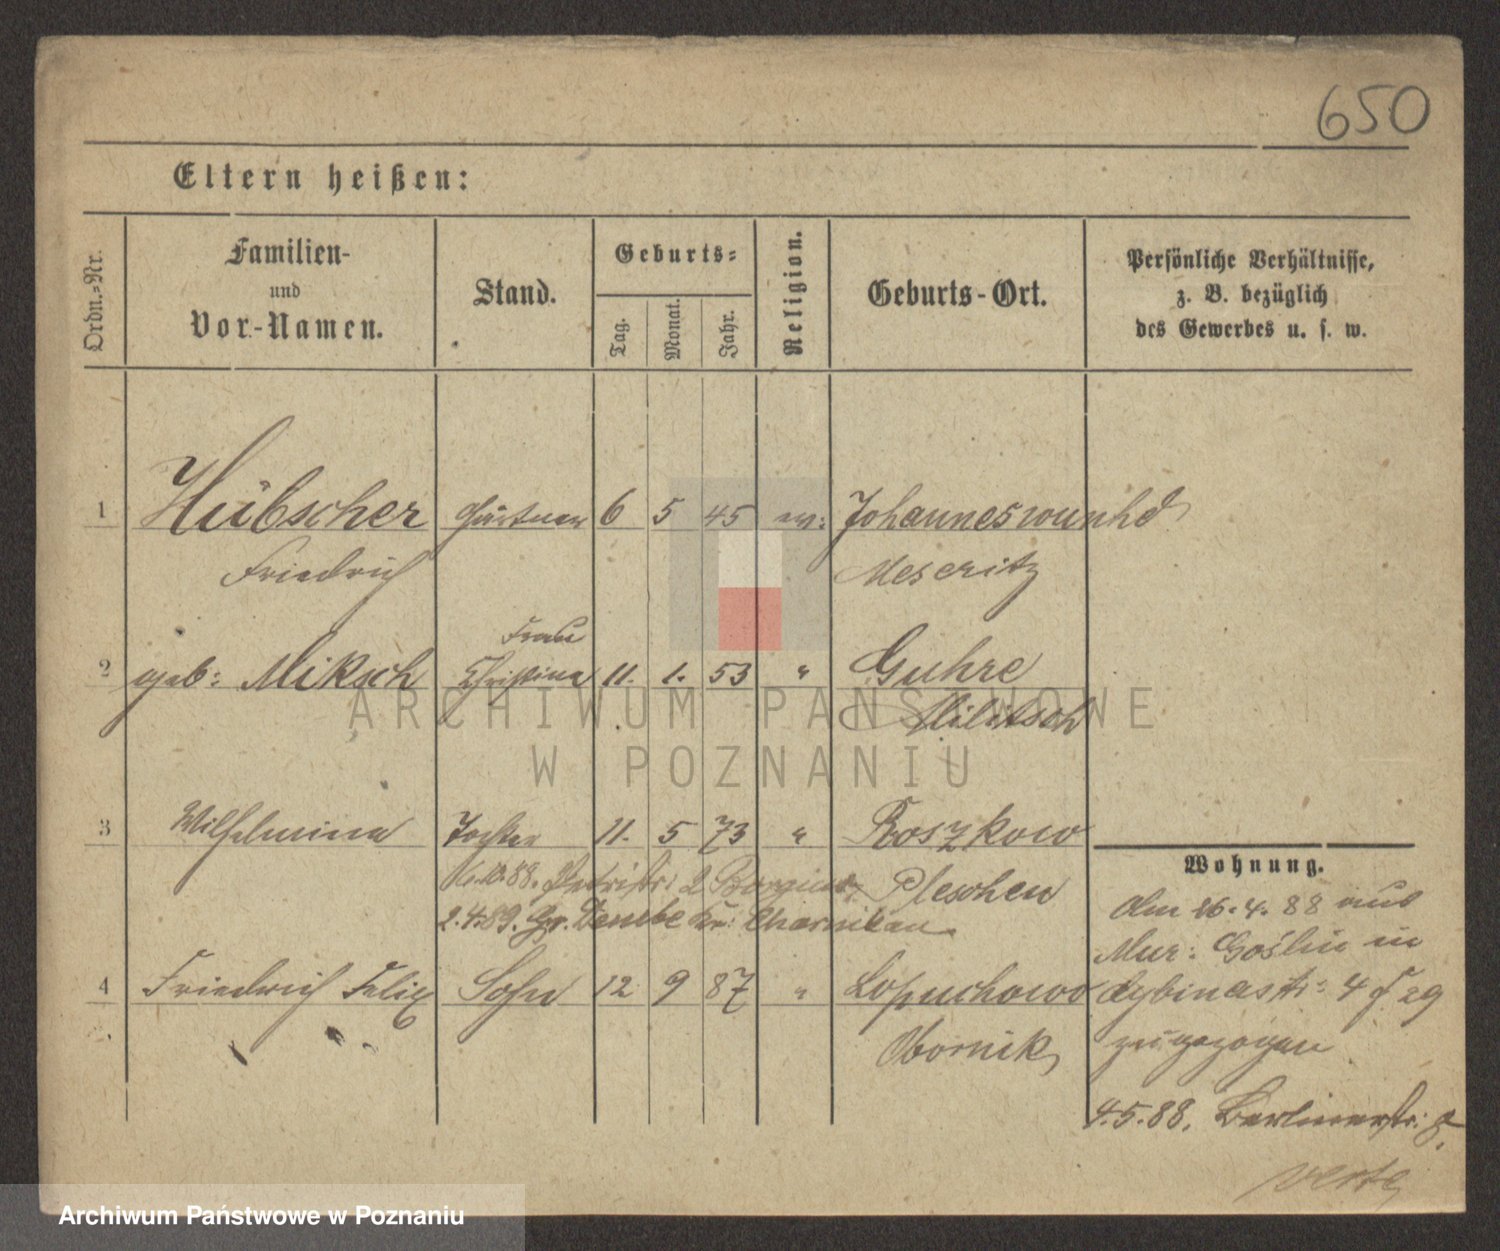 650
Eltern heißen:
Ordn.-Nr.
Familien-
und
Vor-Namen.
Stand.
Geburts-
Tag.
Monat.
Jahr.
Religion.
Geburts-Ort.
Persönliche Verhältnisse,
z. B. bezüglich
des Gewerbes u. s. w.
1 Hübscher Gärtner 6 5 45 ev: Johanneswunhd
Friedrich Meseritz
Frau
2 geb: Miksch Christina 11. 1. 53 " Guhre
Militsch
ARCHIWUM PAŃSTWOWE
W POZNANIU
3 Wilhelmina Tochter 11. 5 73 " Roszkow
88. Petristr: 2 Pleschen
2.4.89. Gr. Kr: Charnikau
4 Friedrich Felix Sohn 12 9 87 " Lopuchowo
Obornik
Wohnung.
Am 26.4.88 aus
Mur: Goslin in
Dybinastr: 4
zugezogen
4.5.88. Berlinerstr: 8.
verte
Archiwum Państwowe w Poznaniu